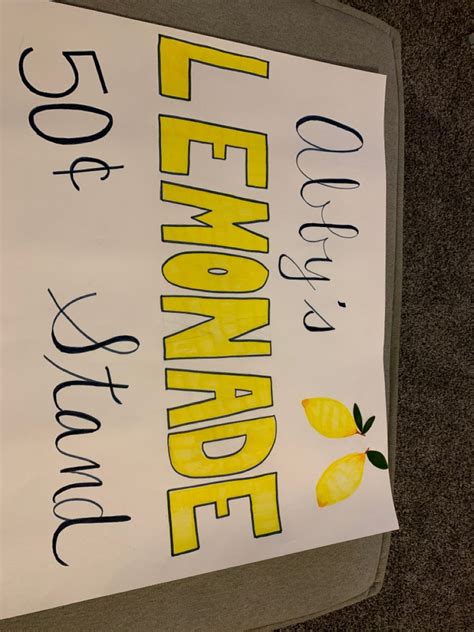 Abby's
LEMONADE
50¢ Stand